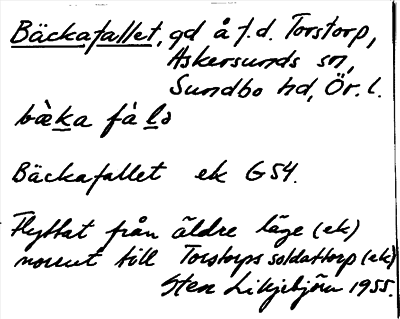 Bäckafallet, gd å f.d. Torstorp,
Askersunds sn,
Sundbo hd, Ör. l.
bàka fá lə
Bäckafallet ek G 54.
Flyttat från äldre läge (ek)
norrut till Torstorps soldattorp (ek)
Sten Liljebjörn 1955.